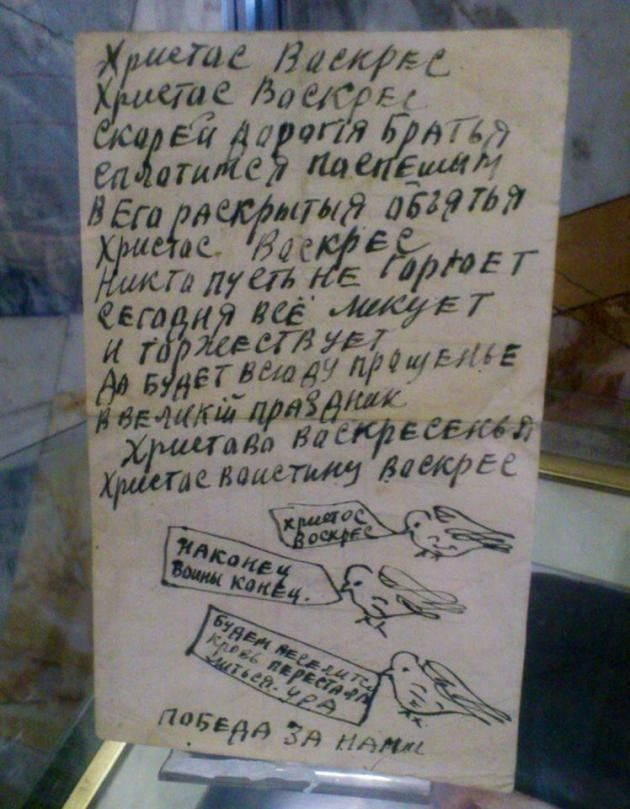 Христас Васкрес
Христас Васкрес
Скарей дарагія братья
сплотимся паспешым
в Его раскрытыя абъятья
Христас Васкрес
Никта пусть не гарюет
Сегодня всё ликует
и торжествует
да будет всюду пращенье
в великій праздник
Христава васкресенья
Христас ваистину васкрес
Христос
Воскрес
Наконец
воины конец.
будем веселится
кровь перестала
литься. ура
победа за нами